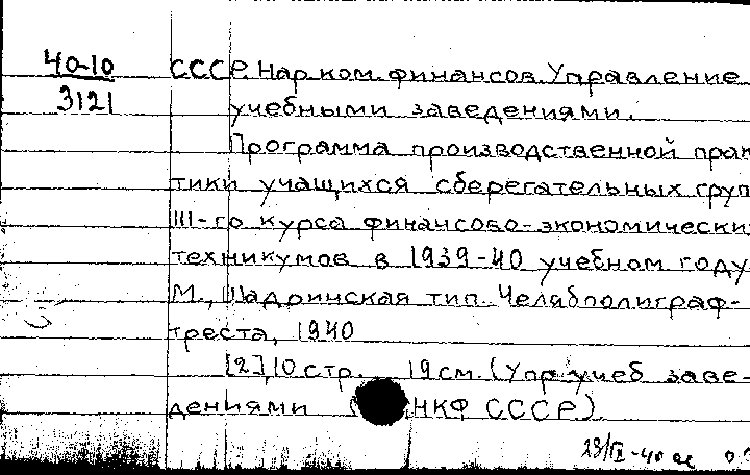 40-10 СССР. Нар. ком. финансов. Управление
3121 учебными заведениями.
Программа производственной прак
тики учащихся сберегательных груп
III-го курса финансово-экономически
техникумов в 1939-40 учебном году
М., Шадринская тип. Челябполиграф-
треста, 1940
[2], 10 стр. 19 см. (Упр. учеб. заве-
дениями НКФ СССР)